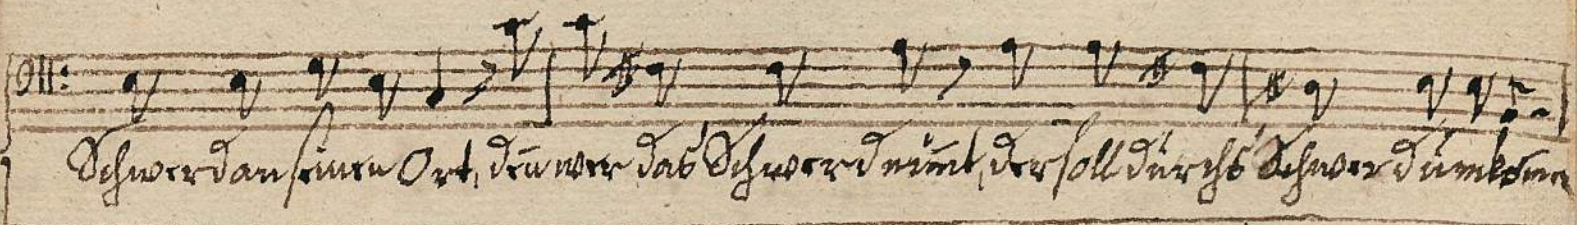 Schwerd an seinen Ort, deñ wer das Schwerd nim̃t, der soll durchs Schwerd umkom̃en